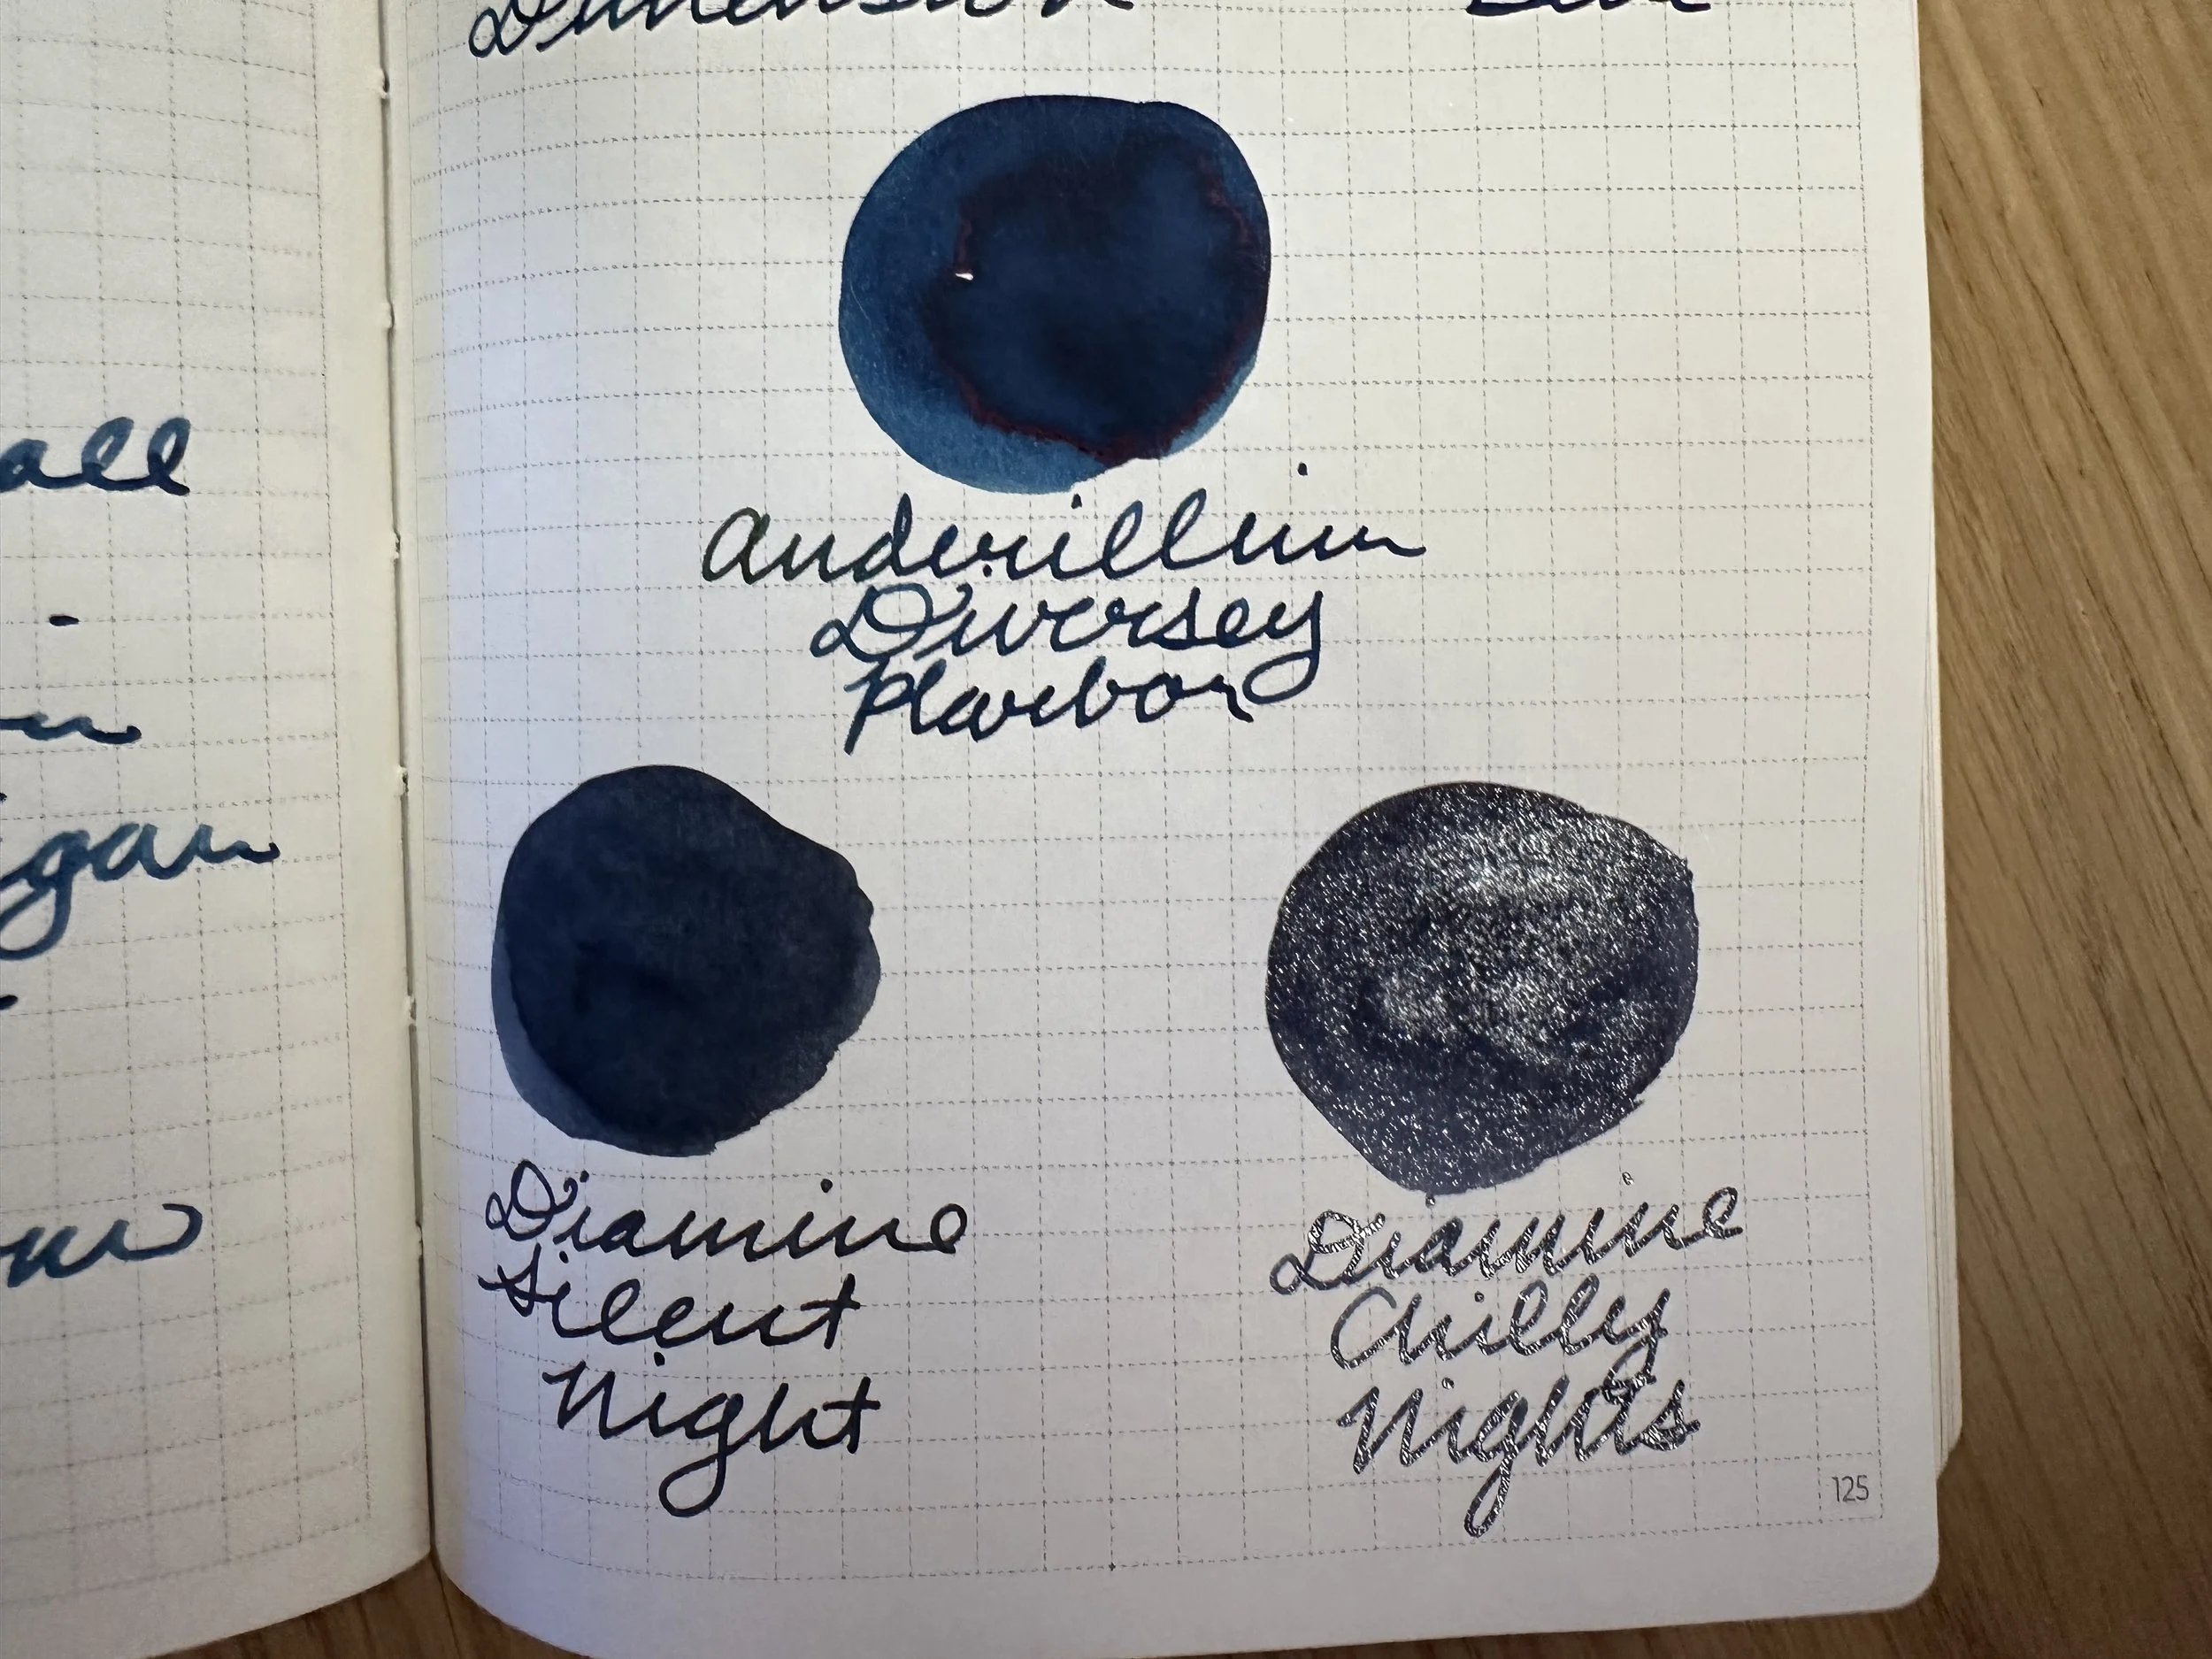 Dimension
all
Anderillium
Diversey
Harbor
gan
Diamine
Silent
Night
Diamine
Chilly
Nights
125